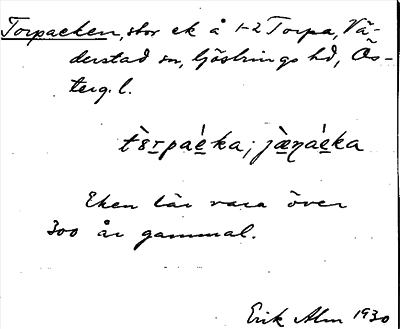 Torpaeken, stor ek å 1-2 Torpa, Vä-
derstad sn, Göstrings hd, Ös-
terg. l.
tɛ̀rpaéka; jæ̀ŋaéka
Eken lär vara över
300 år gammal.
Erik Alm 1930